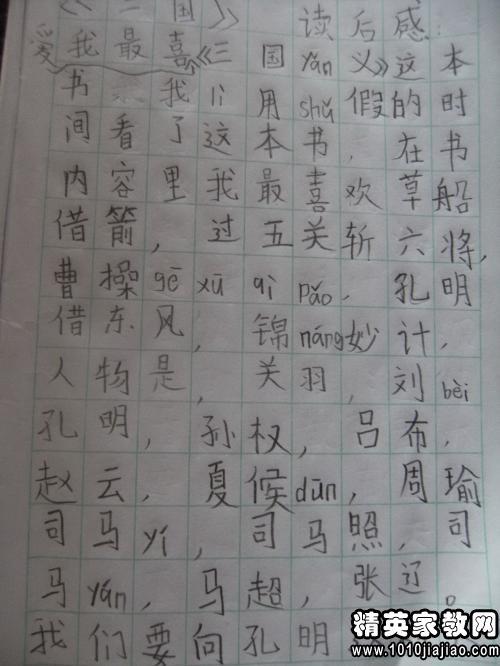 国》 读后感:
爱我最喜《三国yǎn义》这本
书 我lì用shǔ假的时
间看了这本书,在书
内容里我最喜欢草船
借箭,过五关斩六将,
曹操gē xū qì pǎo,孔明
借东风,锦náng妙计,
人物是,关羽,刘bèi
孔明,孙权,吕布,
赵云,夏候dūn,周瑜
司马yí,司马照,司
马yán,马超,张辽。
我们要向孔明
精英家教网
www.1010jiajiao.com